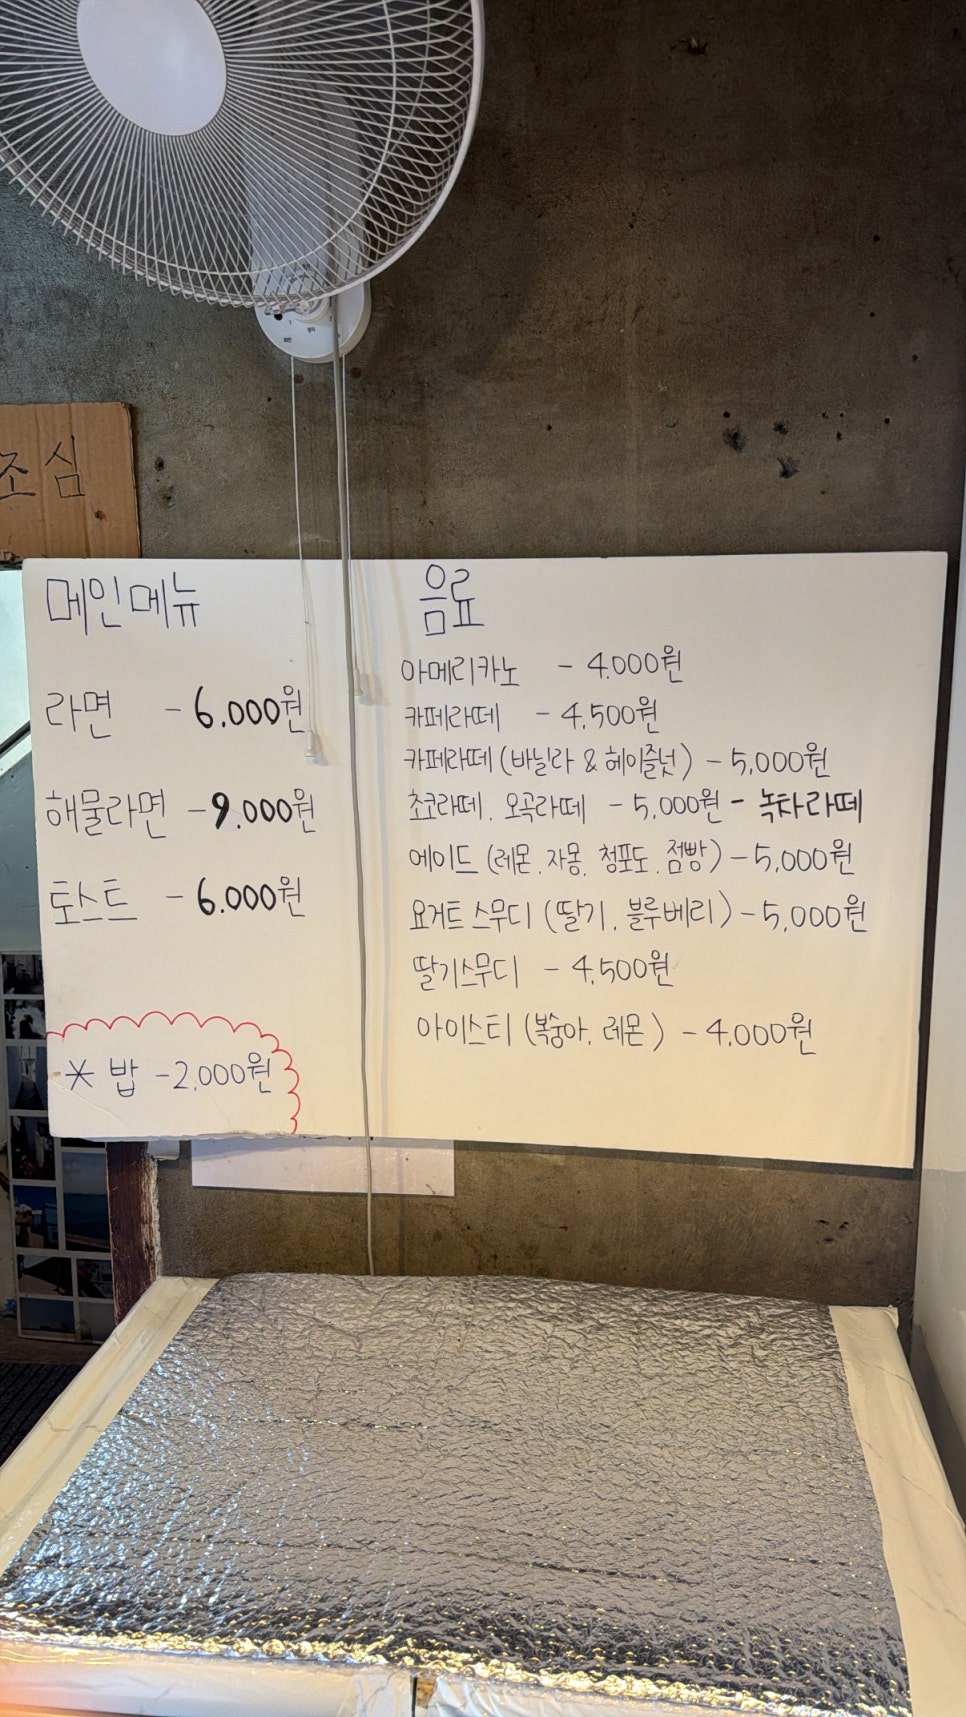 조심
메인메뉴
라면 - 6.000원
해물라면 - 9.000원
토스트 - 6.000원
* 밥 - 2.000원
음료
아메리카노 - 4.000원
카페라떼 - 4,500원
카페라떼 (바닐라 & 헤이즐넛) - 5,000원
초코라떼. 오곡라떼 - 5,000원 - 녹차라떼
에이드 (레몬. 자몽. 청포도. 점빵) - 5,000원
요거트 스무디 (딸기. 블루베리) - 5,000원
딸기스무디 - 4,500원
아이스티 (복숭아. 레몬) - 4,000원